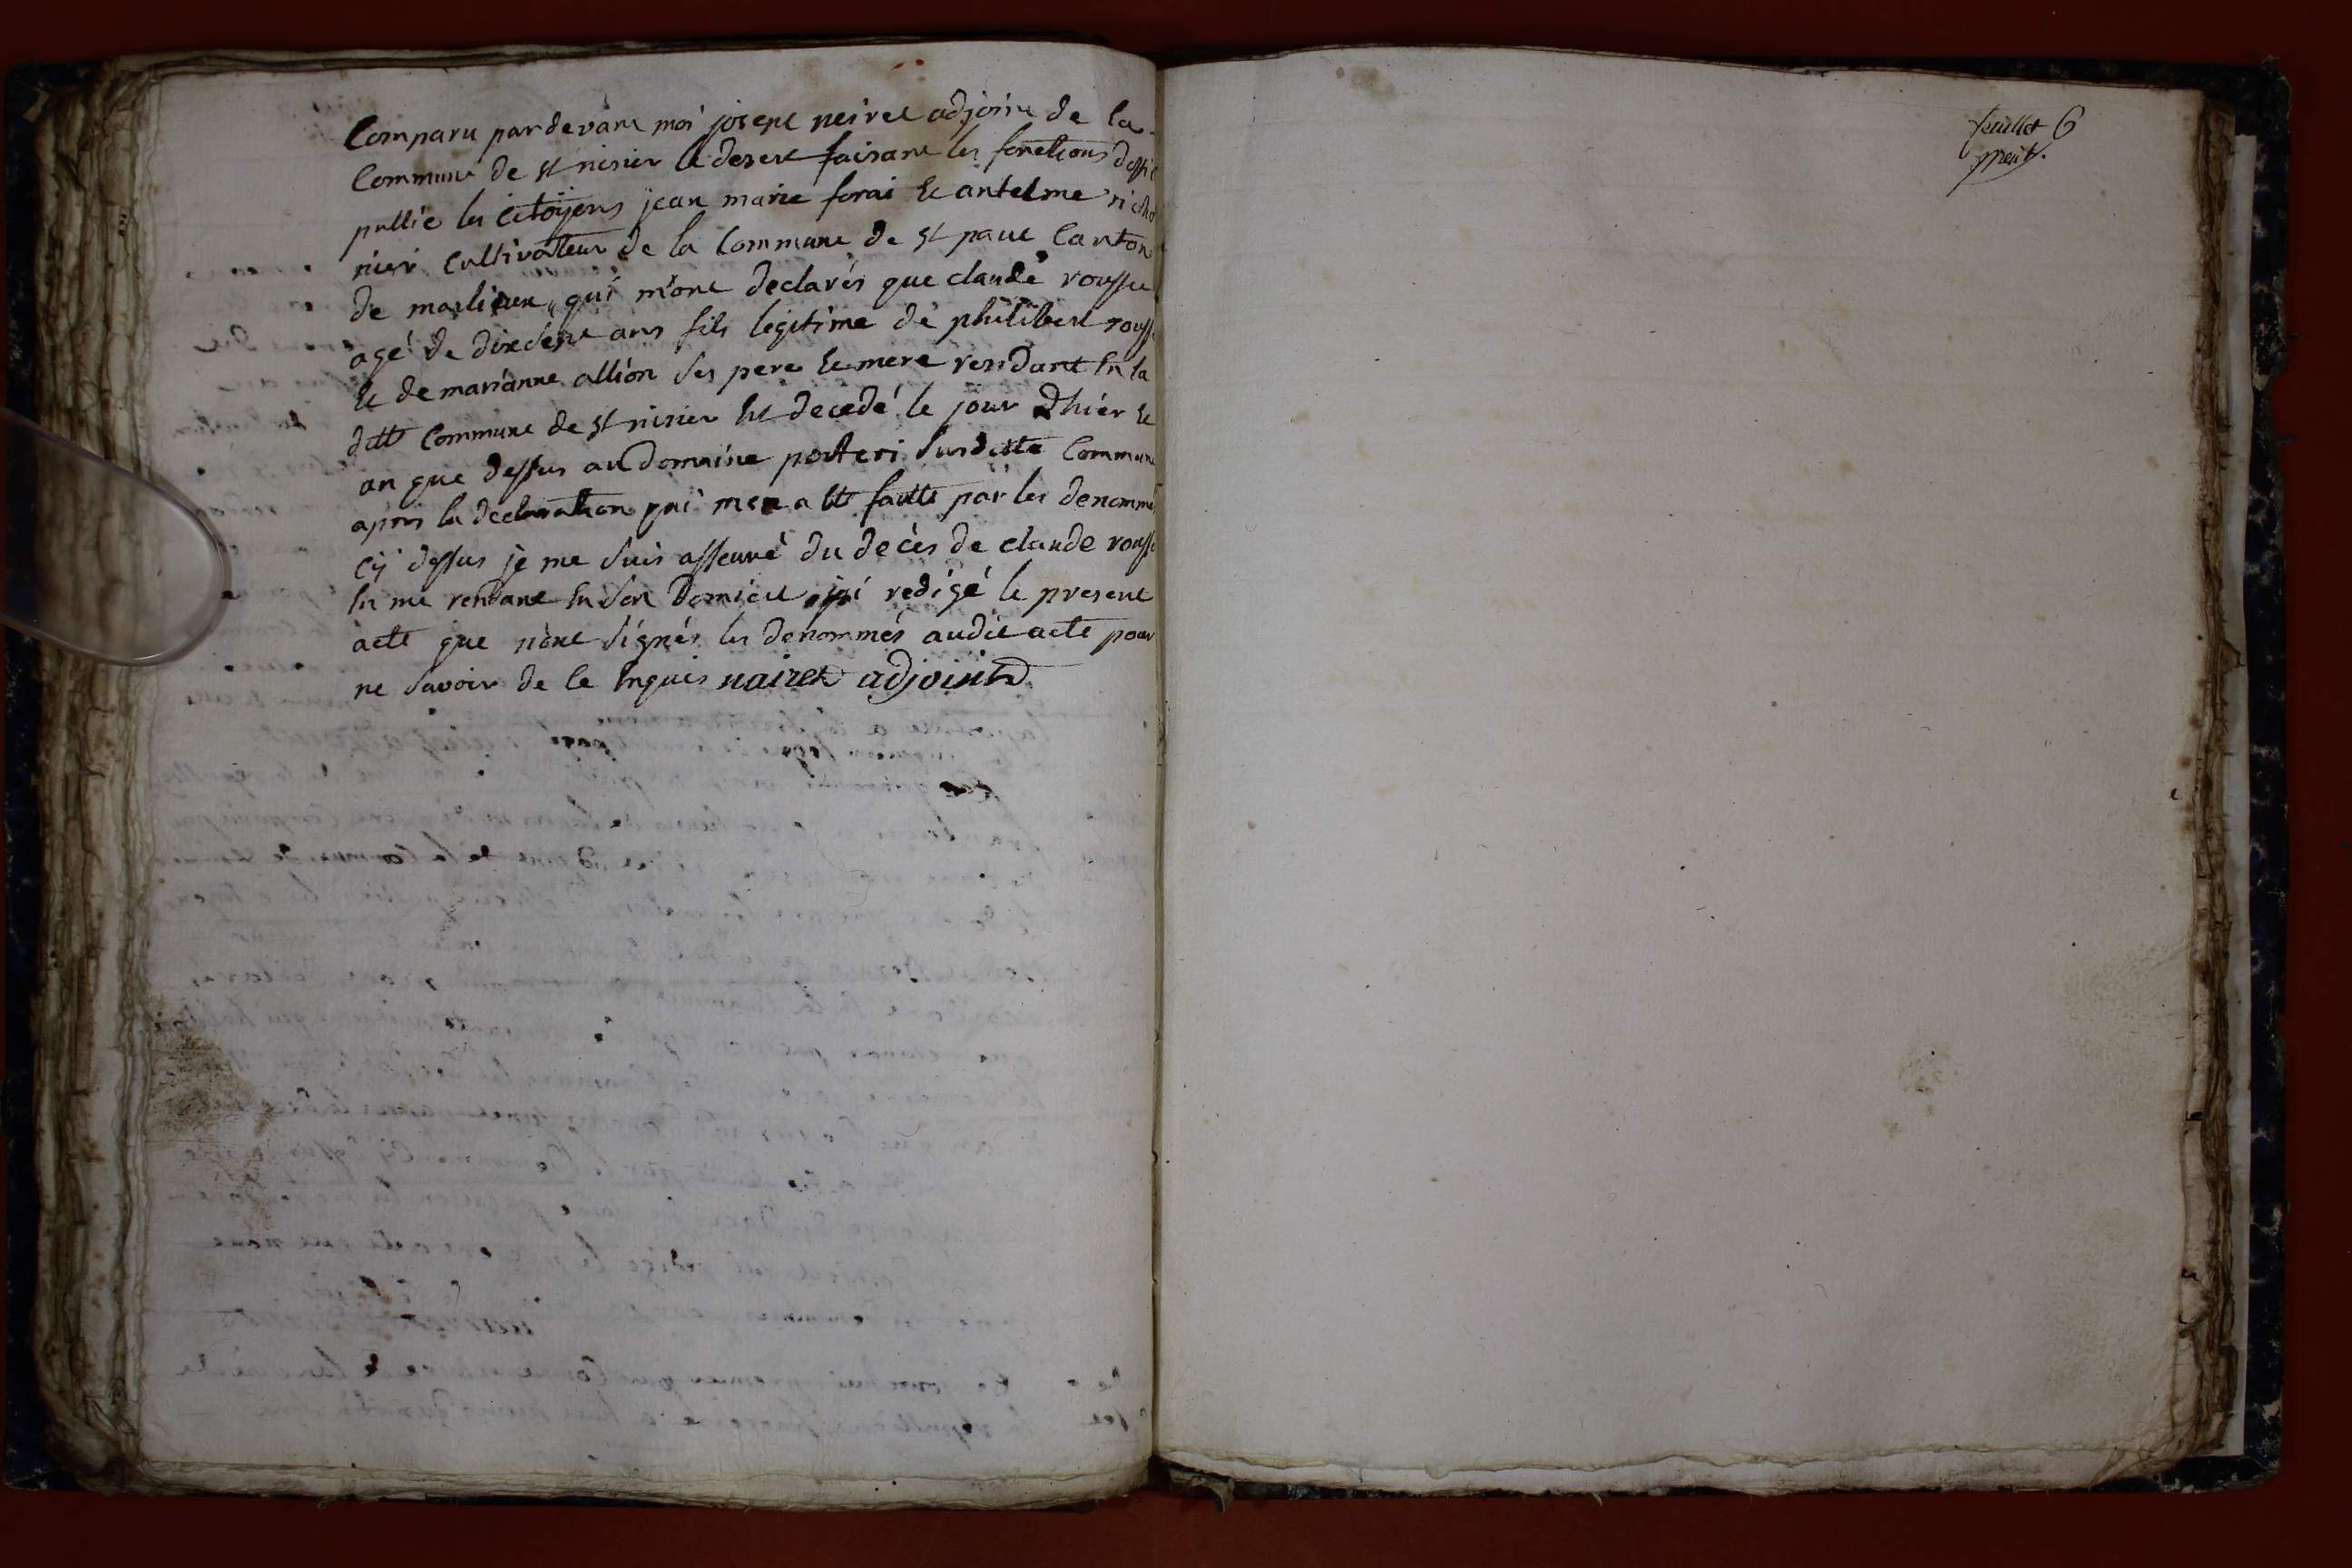 Comparu pardevant moi josept neiret adjoint de la
Commune de st nisier le desert faisant les fonctions doffi
pullic les citoÿens jean marie forai et antelme
nier cultivateur de la Commune de st paul Canton
de marlieux qui m'ont declarés que claude rousset
agé de dixsept ans fils legitime de philibert rouss
et de marianne allion ses pere et mere residant en la
ditte Commune de st nisier est decedé le jour d'hier et
an que dessus au domaine porteri susditte Commune
apres la declaration qui men a ete faitte par les denommé
cÿ dessus je me suis asseuré du decès de claude rouss
en me rendant en son domicile jai redigé le present
acte que n'ont signés les denommés audit acte pour
ne savoir de ce enquis nairet adjoint
feuillet 6